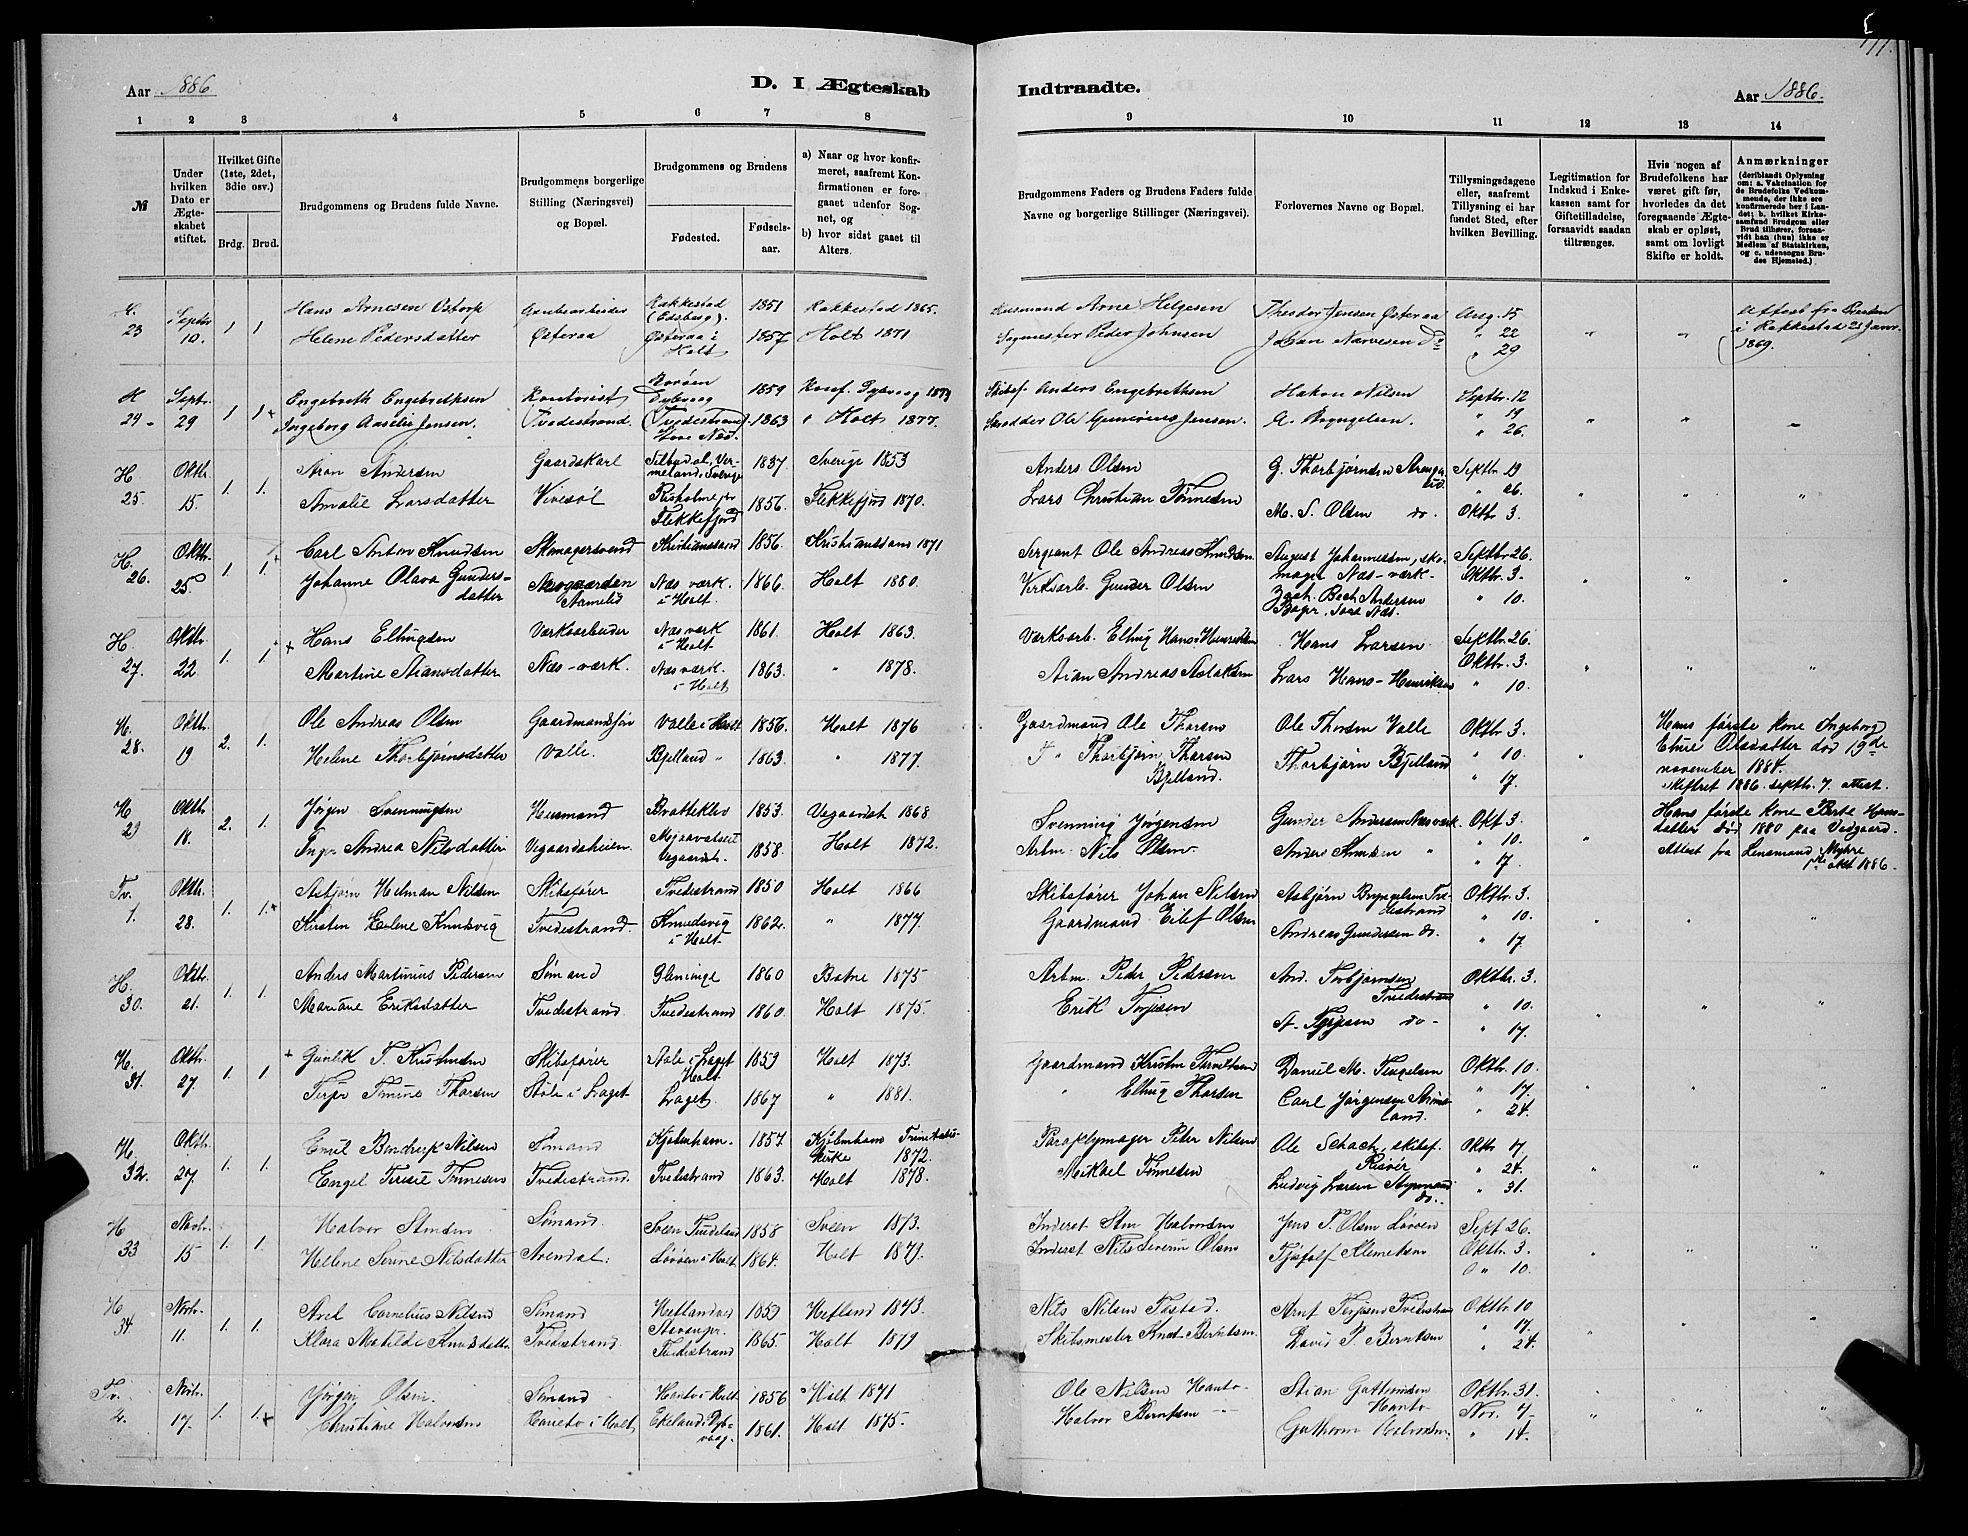 177.
Aar 1886
D. I Ægteskab
Indtraadte.
Aar 1886.
1 2 3 4 5 6 7 8
9 10 11 12 13 14
№
Under hvilken Dato er Ægteskabet stiftet.
Hvilket Gifte (1ste, 2det, 3die osv.)
Brdg. Brud.
Brudgommens og Brudens fulde Navne.
Brudgommens borgerlige Stilling (Næringsvei) og Bopæl.
Brudgommens og Brudens
Fødested.
Fødselsaar.
a) Naar og hvor konfirmeret, saafremt Konfirmationen er foregaaet udenfor Sognet, og
b) hvor sidst gaaet til Alters.
Brudgommens Faders og Brudens Faders fulde Navne og borgerlige Stillinger (Næringsvei).
Forlovernes Navne og Bopæl.
Tillysningsdagene eller, saafremt Tillysning ei har fundet Sted, efter hvilken Bevilling.
Legitimation for Indskud i Enkekassen samt for Giftetilladelse, forsaavidt saadan tiltrænges.
Hvis nogen af Brudefolkene har været gift før, hvorledes da det foregaaende Ægteskab er opløst, samt om lovligt Skifte er holdt.
Anmærkninger
(deriblandt Oplysning om: a. Vakcination for de Brudefolks Vedkommende, der ikke ere konfirmerede her i Landet; b. hvilket Kirkesamfund Brudgom eller Brud tilhører, forsaavidt han (hun) ikke er Medlem af Statskirken, og c. udensogns Brudes Hjemsted.)
23 Septbr 10. 1. 1. Hans Arnesen Østeraa Rakkestad (Edsberg). 1851 Rakkestad 1865. Husmand Arne Helgesen Theodor Jensen Østeraa Aug. 15
Helene Pedersdatter Østeraa Østeraa i Holt 1857 Holt 1871 Sagmester Peder Johnsen Johan Narvesen do " 22
" 29
Attest fra Presten i Rakkestad 21 Janr. 1869.
H 24 Septr. 29 1 1 Engebreth Engebrethsen Kontorist Dybvaag 1859 Konf. Dybvaag Skibsf. Anders Engebrethsen Hakon Nilsen Septbr. 12
Ingeborg Aasilie Jensen. Tvedestrand. Tvedestrand 1863 Holt 1877. Ole Jensen. A. Bryngelsen. " 19
" 26.
H 25 Oktbr. 15. 1. 1. Aron Andersen Gaardskarl Vermeland, Sverige 1837. Sverige 1853 Anders Olsen G. Thorbjørnsen Septbr 19
Amalie Larsdatter Vivestøl Flekkefjord 1856. Flekkefjord 1870. Lars Christian Tønnesen M. S. Olsen do. " 26.
Oktbr 3.
H. 26. Oktbr 25. 1. 1. Carl Anton Knudsen Skomagersvend Kristianssand 1856. Kristianssand 1871 Sergeant Ole Andreas Knudsen August Johannessen, skomager Næs-værk. Septbr 26.
Johanne Olava Gundersdatter Næsgaarden Aamelid Næs værk. i Holt 1866 Holt 1880. Verksarb. Gunder Olsen Zach. Bech Andersen Oktbr. 3.
" 10.
H. 27. Oktbr. 22 1. 1. Hans Ellingsen Værksarbeider Næs værk i Holt 1861. Holt 1863. Værksarb. Elling Hans-Henriksen Hans Larsen Septbr. 26.
Martine Stiansdatter Næs-værk. Næs værk. i Holt 1863. " 1878. Stian Andreas Aslaksen Lars Hans-Henriksen Oktbr. 3.
" 10.
H. 28. Oktbr. 19 2. 1. Ole Andreas Olsen Gaardmandssøn Valle i Holt 1856. Holt 1876 Gaardmand Ole Thorsen Ole Thorsen Valle Oktbr. 3.
Helene Thorbjørnsdatter Valle. Bjelland " 1863. " 1877. Thorbjørn Thorsen Bjelland. Thorbjørn Bjelland " 10.
" 17.
Hans første kone Ingeborg Eline Olsdatter død 19de november 1884. skiftet 1886. septbr. 7. attest.
H 29 Oktbr 18. 2. 1. Jørgen Svenningsen Husmand Bratteklev 1853. Vegaardsh 1868 Svenning Jørgensen Gunder Andersen Næsværk. Oktbr 3.
Andrea Nilsdatter Vegaardsheien. Vegaardsh. 1858. Holt 1872. Arbm. Nils Olsen Anders Knudsen " " 10.
" 17.
Hans første kone Berte Hansdatter død 1880 paa Vedgaard. Attest fra Lensmand Myhre 1886.
Tv. 1. Oktbr. 28. 1. 1. Asbjørn Helman Nilsen Skibsfører Tvedestrand 1850 Holt 1866 Skibsfører Johan Nilsen Asbjørn Bryngelsen Tvedestrand Oktbr. 3.
Kirsten Helene Knudsvig Tvedestrand. Knudsvig i Holt 1862. " 1877. Gaardmand Eilef Olsen Andreas Gundersen do. " 10.
" 17
H. 30. Oktbr. 21. 1. 1. Anders Martinius Pedersen Sømand Gleminge 1860 Botne 1875 Arbm. Peder Pedersen And. Torbjørnsen Tvedestrand Oktbr. 3.
Mariane Eriksdatter Tvedestrand Tvedestrand 1860. Holt 1875. Erik Terjesen A. Terjesen do " 10.
" 17.
H. 31. Oktbr. 27. 1. 1 Gunlik T. Kristensen Skibsfører Støle i Laget Holt 1859 Holt 1873. Gaardmand Kristen Daniel M. Oktbr 10.
Thorsen Støle i Laget Laget. 1867 " 1881. " Elling Thorsen Carl Jørgensen " 17.
" 24.
H. 32. Oktbr. 27. 1. 1. Emil Bendrup Nilsen Sømand Kjøbenhavn. 1857. Kjøbenhavn Trinitatis kirke 1872. Paraplymager Peter Nilsen Ole Schach, skibsf. Risør Oktbr 17.
Engel Tomine Tønnesen Tvedestrand. Tvedestrand 1863. Holt 1878. Mikael Tønnesen Ludvig Larsen do. " 24.
" 31.
H 33 Novbr. 15 1. 1. Halvor Stensen Sømand. 1858 1873. Inderst Sten Halvorsen Jens T. Olsen Løvøen Sept 26.
Hellene Severine Nilsdatter Arendal. Løvøen i Holt 1864. Holt 1879. Inderst Nils Severin Olsen Klemetsen Oktbr. 3.
" 10.
H 34 Novbr. 11. 1. 1. Axel Cornelius Nilsen Sømand Hetland 1853 Hetland 1873. Nils Nilsen Tostad. Arnt Terjesen Tvedestrand Oktbr. 10
Klara Matilde Knudsdatter Tvedestrand. Tvedestrand 1865. Holt 1879 Skibsmester Knut Berntsen David P. Berntsen " 17.
" 24.
Tv. 2. Novbr. 17. 1. 1. Jørgen Olsen Sømand Hanto i Holt 1856 Holt 1871 Ole Nilsen Hanto Stian Guttormsen Hanto Oktbr. 31.
Christiane Halvorsen Hanto i Holt Ekeland i Dybvaag. 1861. Holt 1875. Halvor Berntsen Guthorm Halvorsen. Nov. 7.
" 14.